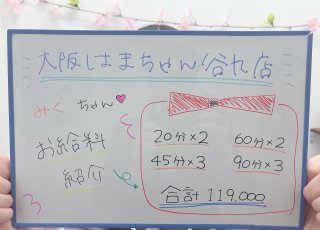 大阪はまちゃん谷九店
みく ちゃん♥
お給料
紹介
20分×2 60分×2
45分×3 90分×3
合計 119,000